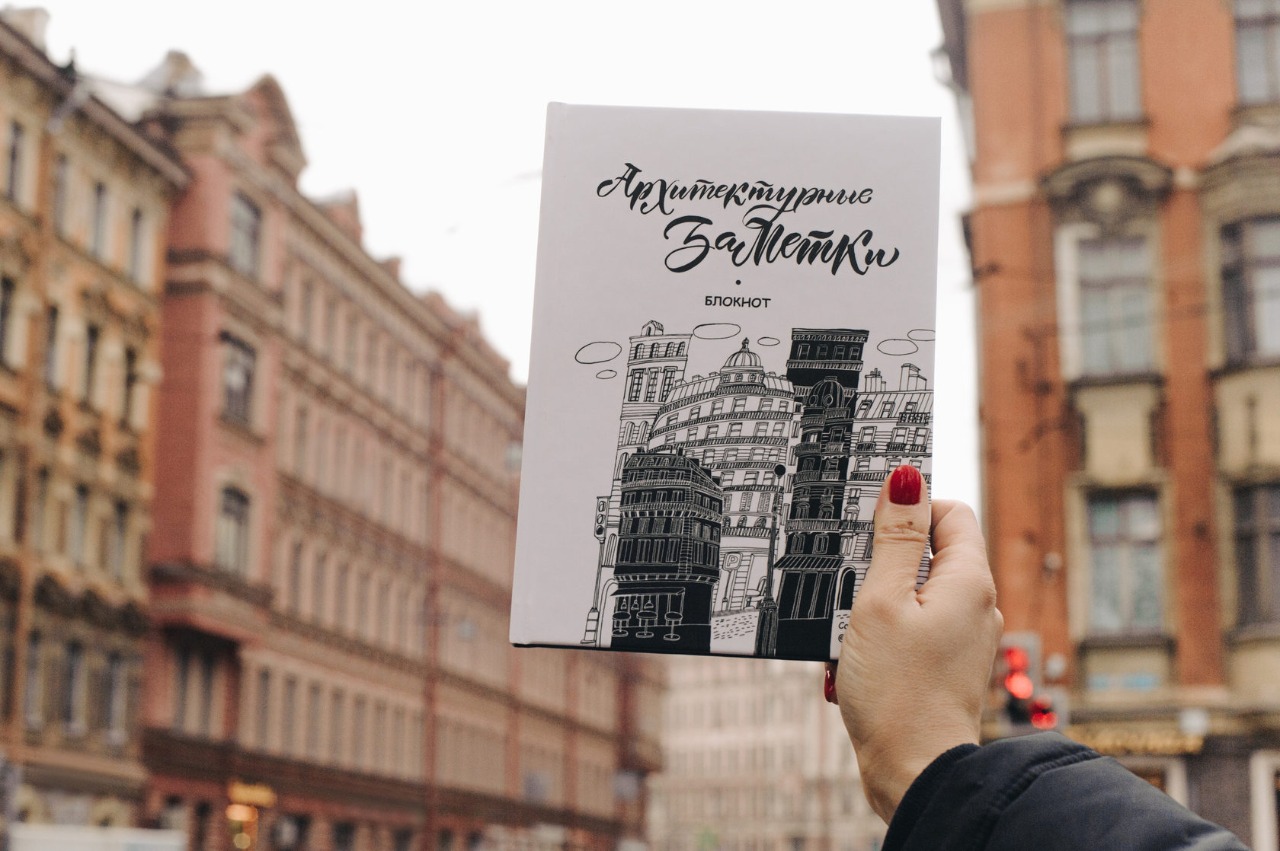 Архитектурные
Заметки
БЛОКНОТ
P